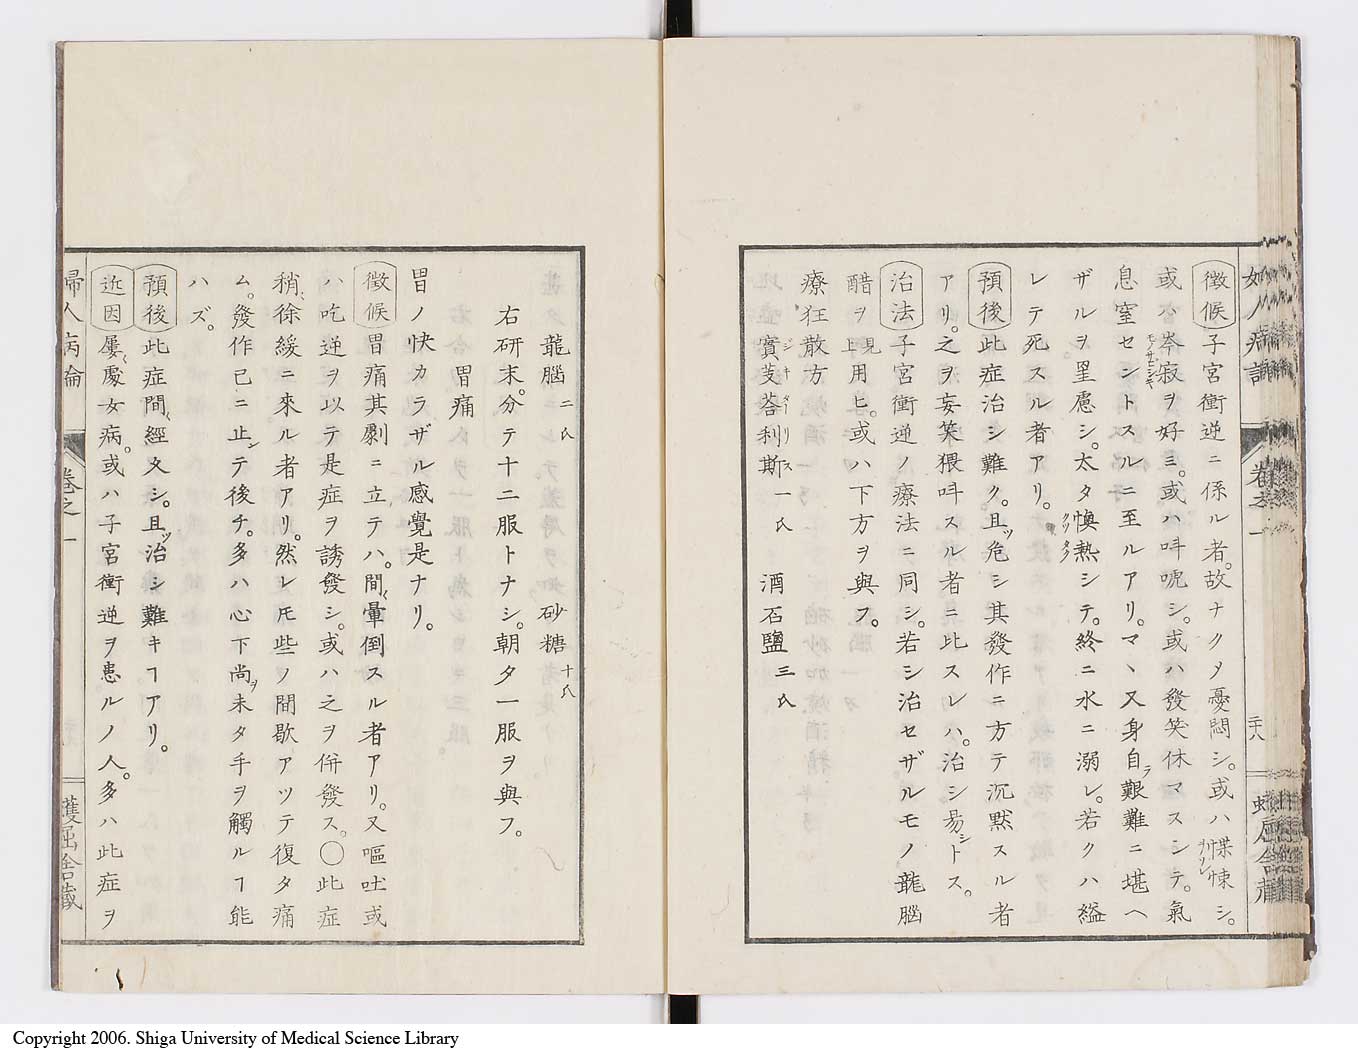 徴候 子宮衝逆ニ係ル者。故ナクメ憂悶シ。或ハ惵悚シ。
或ハ岑寂ヲ好ミ。或ハ呌唬シ。或ハ發笑休マスシテ。氣
息窒セントスルニ至ルアリ。マヽ又身自ラ艱難ニ堪ヘ
ザルヲ罣慮シ。太タ懊熱シテ。終ニ水ニ溺レ。若クハ縊
レテ死スル者アリ。
預後 此症治シ難ク。且ツ危シ其發作ニ方テ沉黙スル者
アリ。之ヲ妄笑猥呌スル者ニ比スレハ。治シ易シトス。
治法 子宮衝逆ノ療法ニ同シ。若シ治セザルモノ龍腦
醋ヲ見上用ヒ。或ハ下方ヲ與フ。
療狂散方
實芰荅利斯 一氏 酒石鹽 三氏
龍腦 二氏 砂糖 十氏
右研末。分テ十二服トナシ。朝夕一服ヲ與フ。
胃痛
胃ノ快カラザル感覺是ナリ。
徴候 胃痛其劇ニ立テハ。間〻暈倒スル者アリ。又嘔吐或
ハ吃逆ヲ以テ是症ヲ誘發シ。或ハ之ヲ併發ス。○此症
稍〻徐緩ニ來ル者アリ。然レ𪜈些ノ間歇アツテ復タ痛
ム。發作已ニ止ンテ後チ。多ハ心下尚ヲ未タ手ヲ觸ルヿ能
ハズ。
預後 此症間〻經久シ。且ツ治シ難キヿアリ。
近因 屢〻處女病。或ハ子宮衝逆ヲ患ルノ人。多ハ此症ヲ
婦人病論 卷之一 蠖屈舎藏
Copyright 2006. Shiga University of Medical Science Library